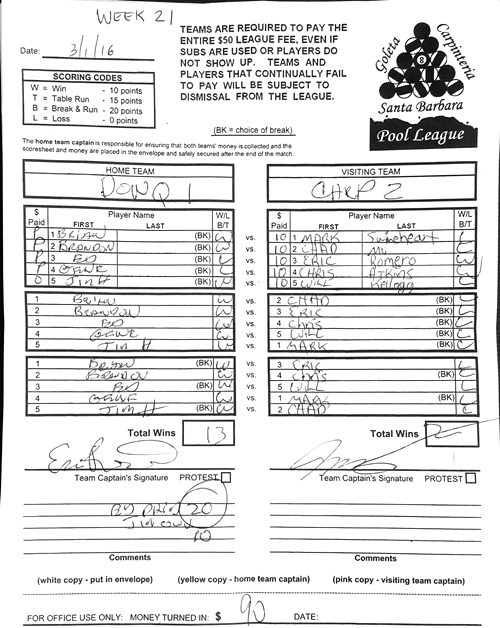 WEEK 21
Date: 3/1/16
TEAMS ARE REQUIRED TO PAY THE
ENTIRE $50 LEAGUE FEE, EVEN IF
SUBS ARE USED OR PLAYERS DO
NOT SHOW UP. TEAMS AND
PLAYERS THAT CONTINUALLY FAIL
TO PAY WILL BE SUBJECT TO
DISMISSAL FROM THE LEAGUE.
(BK = choice of break)
SCORING CODES
W = Win - 10 points
T = Table Run - 15 points
B = Break & Run - 20 points
L = Loss - 0 points
Goleta
Carpinteria
8
Santa Barbara
Pool League
The home team captain is responsible for ensuring that both teams' money is collected and the
scoresheet and money are placed in the envelope and safely secured after the end of the match.
HOME TEAM VISITING TEAM
DONQ 1 CARP 2
$ Paid Player Name FIRST LAST W/L B/T $ Paid Player Name FIRST LAST W/L B/T
P 1 BRIAN (BK) W vs. 10 1 MARK Swineheart L
P 2 BRANDON (BK) vs. 10 2 CHAD
P 3 ED (BK) W vs. 10 3 ERIC Romero L
P 4 GENE (BK) vs. 10 4 CHRIS Atkins
0 5 JIM H (BK) W vs. 10 5 WILL Kellogg L
1 BRIAN W vs. 2 CHAD (BK) L
2 BRANDON W vs. 3 ERIC (BK) L
3 ED W vs. 4 Chris (BK) L
4 GENE W vs. 5 WILL (BK) L
5 JIM H W vs. 1 MARK (BK) L
1 BRIAN (BK) W vs. 3 ERIC L
2 BRANDON W vs. 4 Chris (BK) L
3 ED (BK) W vs. 5 WILL L
4 GENE W vs. 1 MARK (BK) L
5 JIM H (BK) W vs. 2 CHAD L
Total Wins 13 Total Wins 2
Team Captain's Signature PROTEST Team Captain's Signature PROTEST
20
10
Comments Comments
(white copy - put in envelope) (yellow copy - home team captain) (pink copy - visiting team captain)
FOR OFFICE USE ONLY: MONEY TURNED IN: $ 90 DATE: